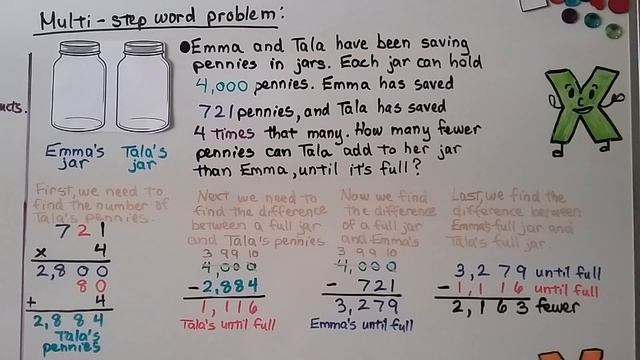 Multi-step word problem:
Emma and Tala have been saving
pennies in jars. Each jar can hold
4,000 pennies. Emma has saved
721 pennies, and Tala has saved
4 times that many. How many fewer
pennies can Tala add to her jar
than Emma, until it's full?
ucts.
Emma's jar
Tala's jar
First, we need to
find the number of
Tala's pennies.
721
x 4
2,800
80
+ 4
2,884
Tala's
pennies
Next we need to
find the difference
between a full jar
and Tala's pennies
3 9 9 10
4,000
-2,884
1,116
Tala's until full
Now we find
the difference
of a full jar
and Emma's
3 9 9 10
4,000
- 721
3,279
Emma's until full
Last, we find the
difference between
Emma's full jar and
Tala's full jar.
3,279 until full
-1,116 until full
2,163 fewer
X